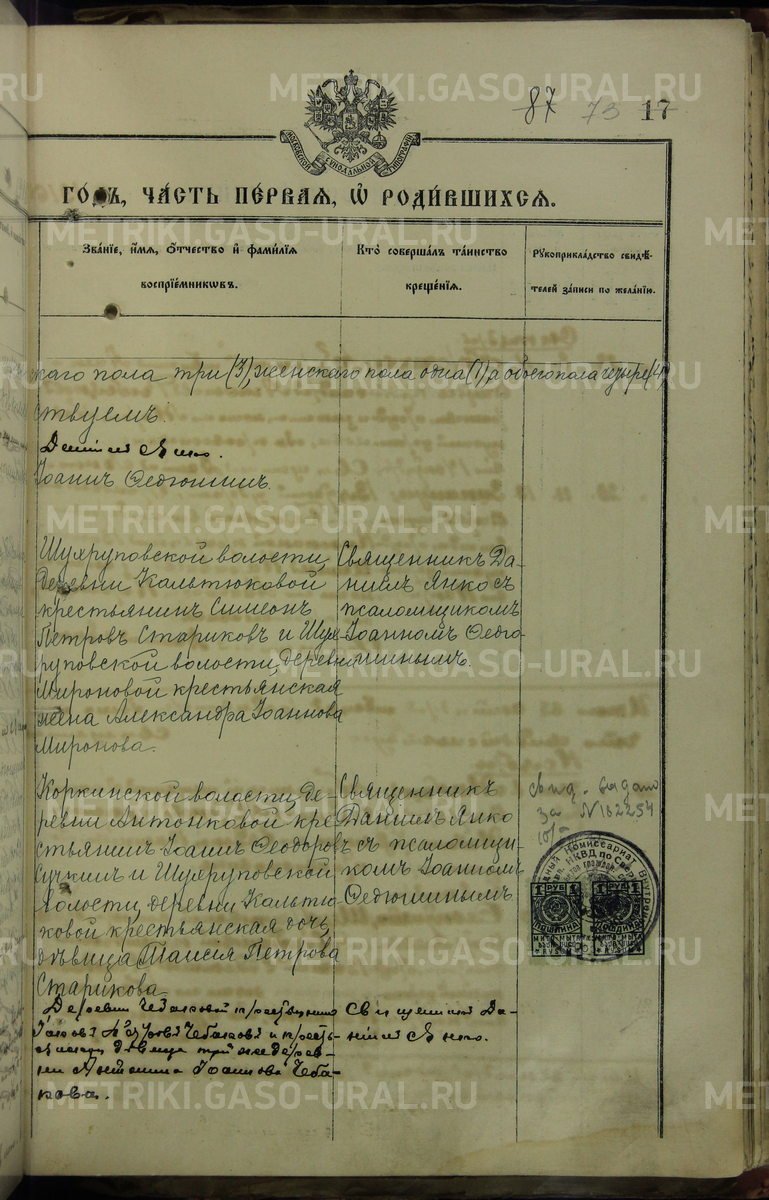 METRIKI.GASO-URAL.RU
87 73 17
МОСКОВСКОЙ СУНОДАЛЬНОЙ ТИПОГРАФІИ
ГО́ДЪ, ЧА́СТЬ ПЕ́РВАЯ, Ѡ҆ РОДИ́ВШИХСЯ.
Зва́нїе, и҆́мя, ѻ҆́тчество и҆ фами́лїя
воспрїе́мникѡвъ.
Кто̀ соверша́лъ та́инство
креще́нїя.
Рꙋкоприкла́дство свидѣ́-
телей за́писи по жела́нїю.
каго пола три (3), женскаго пола одна (1), а обоего пола четыре (4)
ствуемъ.
Даніилъ Янко.
Іоаннъ Ѳедюшинъ.
Шухруповской волости,
деревни Кальтюковой
крестьянинъ Симеонъ
Петровъ Стариковъ и Шух-
руповской волости, дерев.
Мироновой крестьянская
жена Александра Іоаннова
Миронова.
Священникъ Да-
ніилъ Янко съ
псаломщикомъ
Іоанномъ Ѳедю-
шинымъ.
Коркинской волости, де-
ревни Антонковой кре-
стьянинъ Іоаннъ Ѳеодоровъ
Сучкинъ и Шухруповской
волости, деревни Кальтю-
ковой крестьянская дочь,
дѣвица Таисія Петрова
Старикова
Священникъ
Даніилъ Янко
съ псаломщи-
комъ Іоанномъ
Ѳедюшинымъ
свид. выдано
за N 182254
Комиссариат Внутрен
НКВД по Св
1 РУБ 1 1 РУБ 1
ПОШЛИНА
Деревни Чебаковой крестьянинъ
Чебаковъ и кресть-
янская дѣвица той же дерев-
ни Антонина Іоаннова Чеба-
кова.
Священникъ Да-
ніилъ Янко.